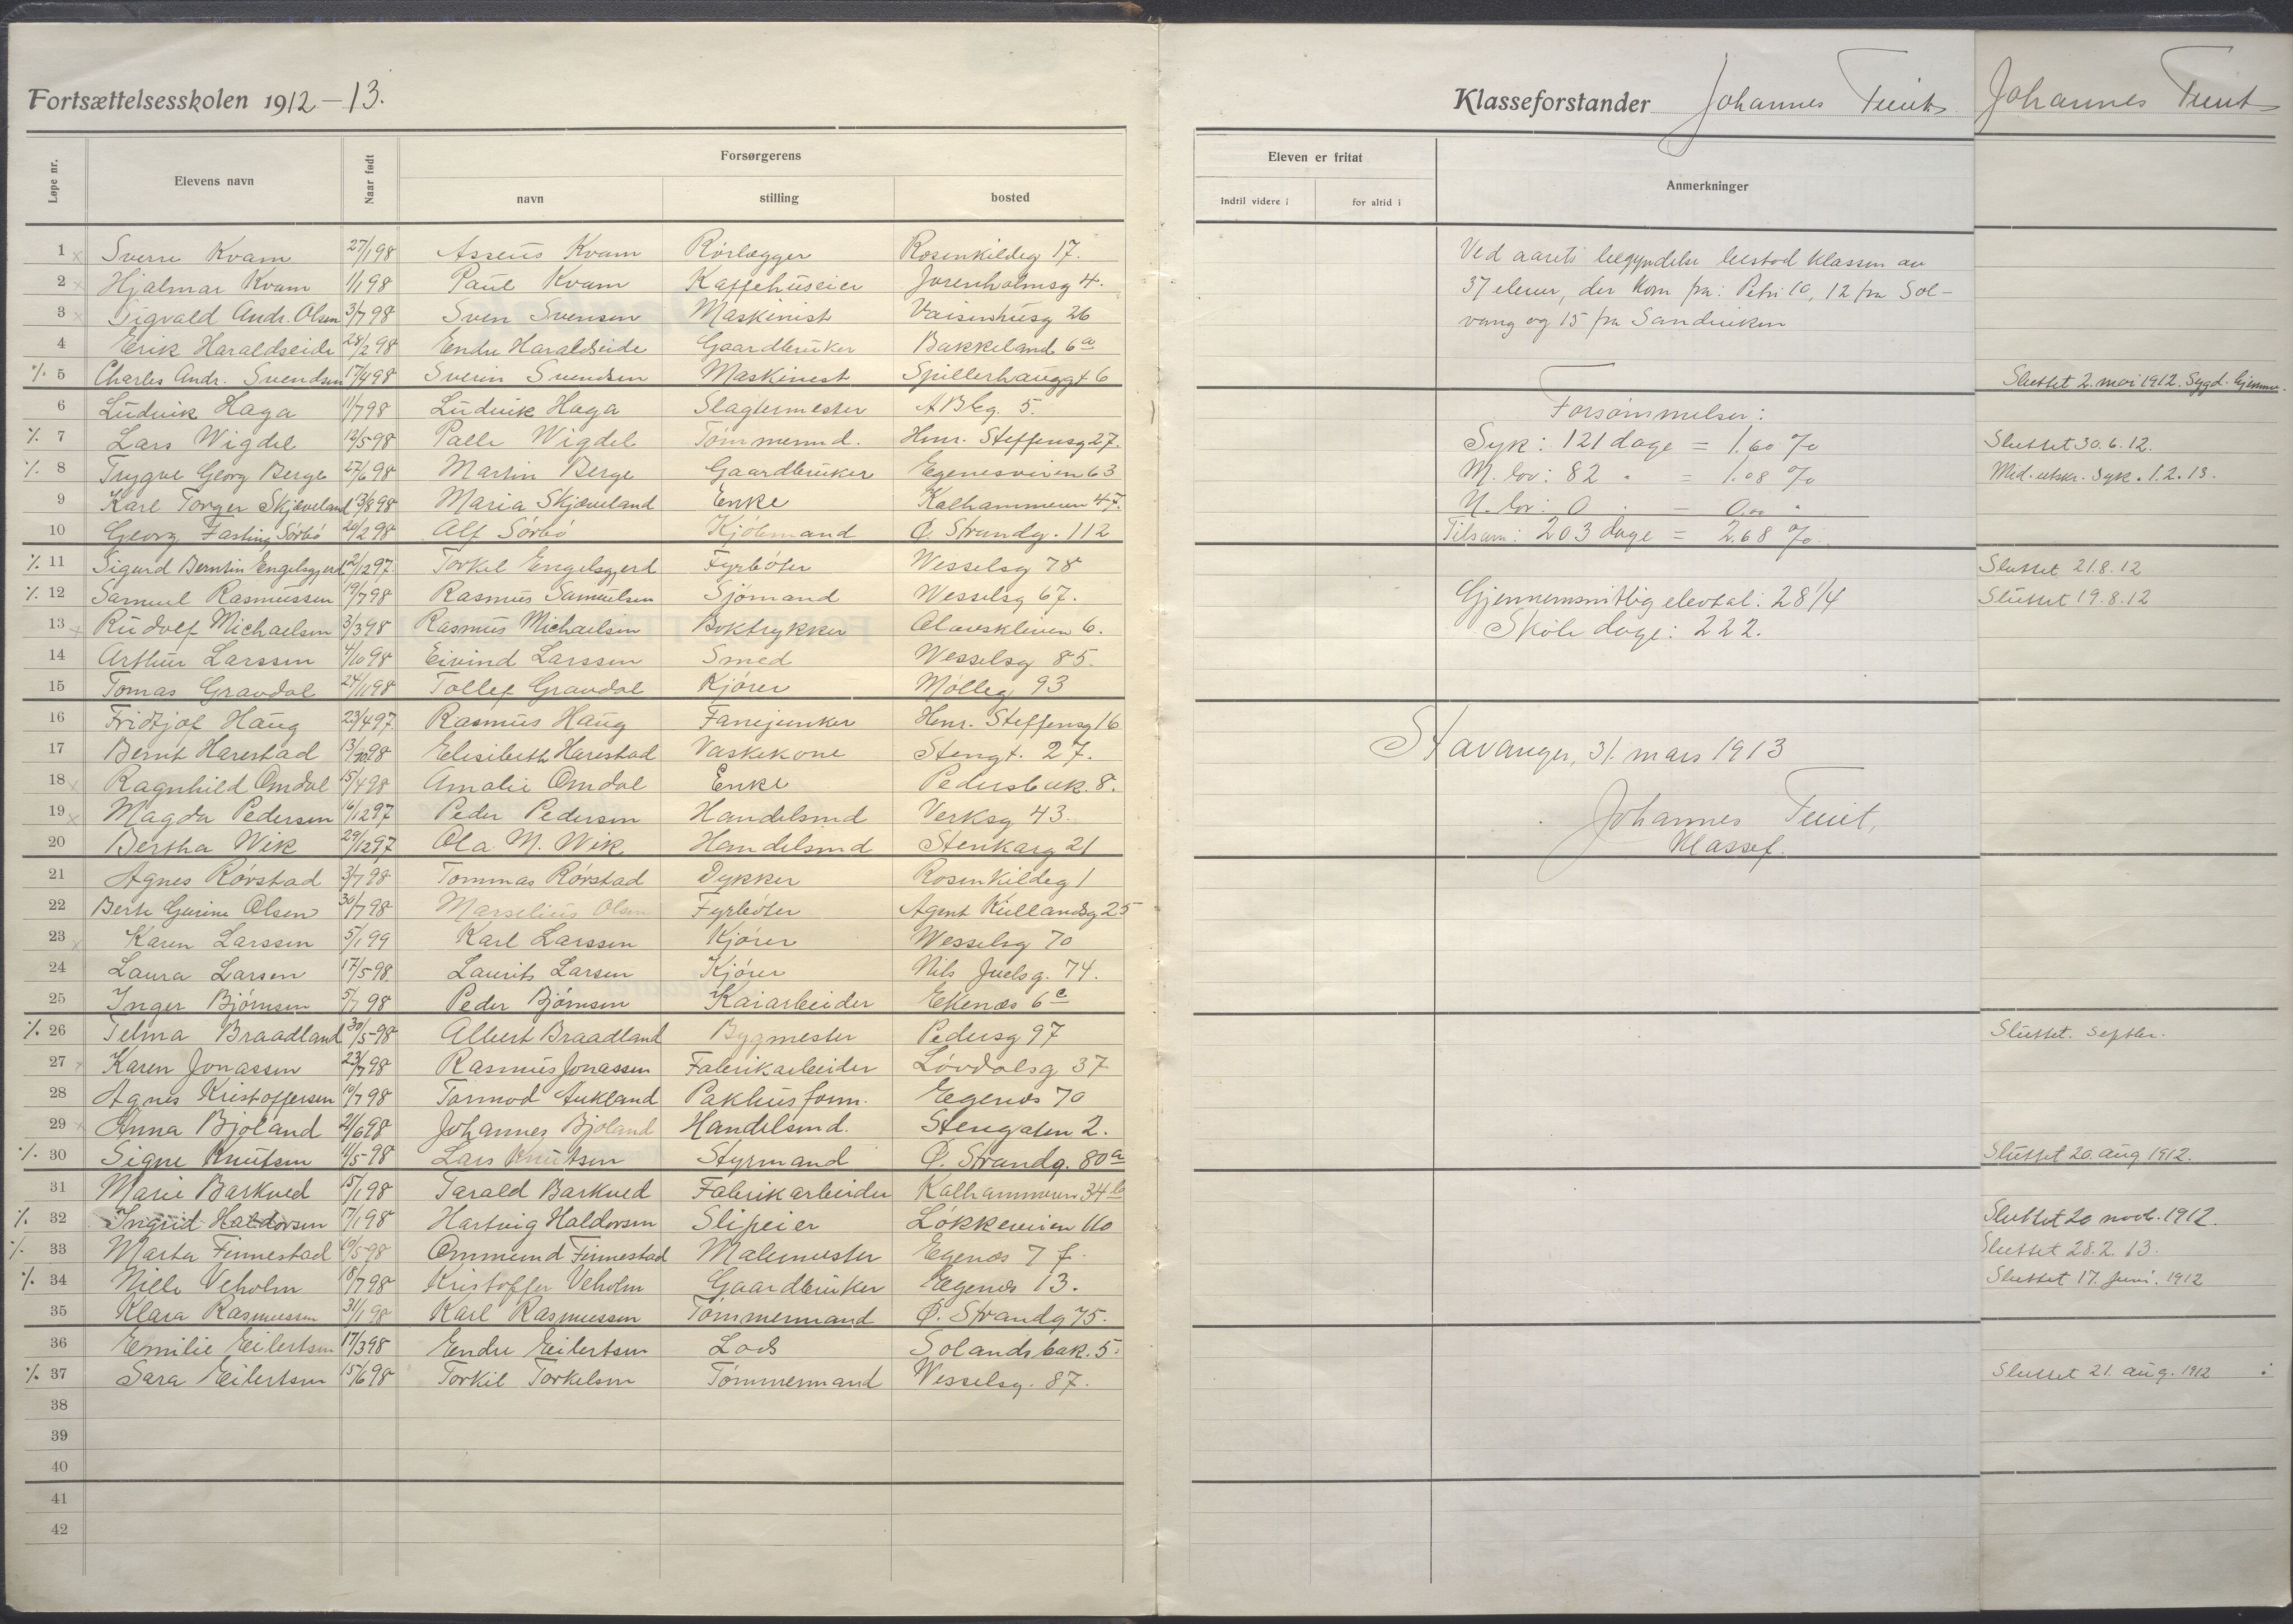 Fortsættelsesskolen 1912-13.
Løpe nr. Elevens navn Naar født Forsørgerens
navn stilling bosted
1 Sverre Kvam 27/1 98 Asseus Kvam Rørlægger Rosenkildeg 17.
2 Hjalmar Kvam 1/1 98 Paul Kvam Kaffehuseier Jorenholmsg 4.
3 Sigvald Andr. Olsen 3/7 98 Sven Svensen Maskinist Vaisenhusg 26
4 Erik Haraldseide 28/2 98 Endre Haraldseide Gaardbruker Bakkeland 6a
% 5 Charles Andr. Svendsen 17/4 98 Sverin Svendsen Maskinist Spillerhauggt 6
6 Ludvik Haga 11/7 98 Ludvik Haga Slagtermester A Bkg. 5.
% 7 Lars Wigdel 12/5-98 Palle Wigdel Tømmermd. Henr. Steffensg 27.
% 8 Trygve Georg Berge 27/6 98 Martin Berge Gaardbruker Egenesveien 63
9 Karl Torger Skjæveland 13/8 98 Maria Skjæveland Enke Kalhammeren 47.
10 Georg Fasting Sørbø 20/2 98 Alf Sørbø Kjøbmand Ø. Strandg. 112
% 11 Sigurd Berntin Engelsgjerd 2/12 97. Torkel Engelsgjerd Fyrbøter Wesselsg 78
% 12 Samuel Rasmussen 19/7 98 Rasmus Samuelsen Sjømand Wesselsg 67.
13 Rudolf Michaelsen 3/3 98 Rasmus Michaelsen Boktrykker Olavskleven 6.
14 Arthur Larssen 4/10 98 Eivind Larssen Smed Wesselsg 85.
15 Tomas Gravdal 24/11 98 Tollef Gravdal Kjører Mølleg 93
16 Fridtjof Haug 23/4 97. Rasmus Haug Fanejunker Henr. Steffensg 16
17 Bernt Harestad 13/10 98 Elisibeth Harestad Vaskekone Stengt. 27.
18 Ragnhild Omdal 15/4 98 Amalie Omdal Enke Pedersbak. 8.
19 Magda Pedersen 16/12 97 Peder Pedersen Handelsmd Verksg 43.
20 Bertha Wik 29/12 97 Ola M. Wik Handelsmd Stenkarg 21
21 Agnes Rørstad 3/7 98 Tommas Rørstad Dykker Rosenkildeg 1
22 Berte Gurine Olsen 30/7 98 Marselius Olsen Fyrbøter Agent Kiellandsg 25
23 Karen Larssen 5/1 99 Karl Larssen Kjører Wesselsg 70
24 Laura Larsen 17/5-98. Laurits Larsen Kjører Nils Juelsg. 74.
25 Inger Bjørnsen 5/7 98 Peder Bjørnsen Kaiarbeider Ekenæs 6c
% 26 Telma Braadland 30/5-98 Albert Braadland Bygmester Pedersg 97
27 Karen Jonassen 23/7 98 Rasmus Jonassen Fabrikarbeider Løvdalsg 37
28 Agnes Kristoffersen 10/7 98 Tormod Aukland Pakhusform. Egenæs 70
29 Anna Bjoland 21/6 98 Johannes Bjoland Handelsmd. Stengaten 2.
% 30 Signe Knutsen 11/5-98 Lars Knutsen Styrmand Ø. Strandg. 80a
31 Marie Barkved 15/1 98 Tarald Barkved Fabrikarbeider Kalhammeren 34b
% 32 Ingrid Haldorsen 17/1 98 Hartvig Haldorsen Slipeier Løkkeveien 110
% 33 Marta Finnestad 10/5-98 Ommund Finnestad Malemester Egenæs 7 f.
% 34 Nille Veholm 18/7 98 Kristoffer Veholm Gaardbruker Egenæs 13.
35 Klara Rasmussen 31/1 98 Karl Rasmussen Tømmermand Ø. Strandg 75.
36 Emilie Eilertsen 17/3 98 Endre Eilertsen Lods Solandsbak. 5.
% 37 Sara Eilertsen 15/6 98 Torkil Torkelsen Tømmermand Wesselsg. 87.
38
39
40
41
42
Klasseforstander Johannes Tveit
Eleven er fritat Anmerkninger
indtil videre i for altid i
Ved aarets begyndelse bestod klassen av
37 elever, der kom fra: Petri 10, 12 fra Sol-
vang og 15 fra Sandviken
Forsømmelser:
Syk: 121 dage = 1.60 %
M. lov: 82 " = 1.08 %
U. lov: 0 " = 0,00 "
Tilsam: 203 dage = 2.68 %.
Gjennemsnitlig elevtal: 28 1/4
Skole dage: 222.
Stavanger, 31. mars 1913
Johannes Tveit,
Klassef.
Johannes Tveit
Sluttet 2. mai 1912. Sygd. hjemme.
Sluttet 30. 6. 12.
Mid. utskr. Syk. 1. 2. 13.
Sluttet 21. 8. 12
Sluttet 19. 8. 12
Sluttet. Septbr.
Sluttet 20. aug 1912.
Sluttet 20 novb. 1912.
Sluttet 28. 2. 13.
Sluttet 17. juni. 1912
Sluttet 21. aug. 1912